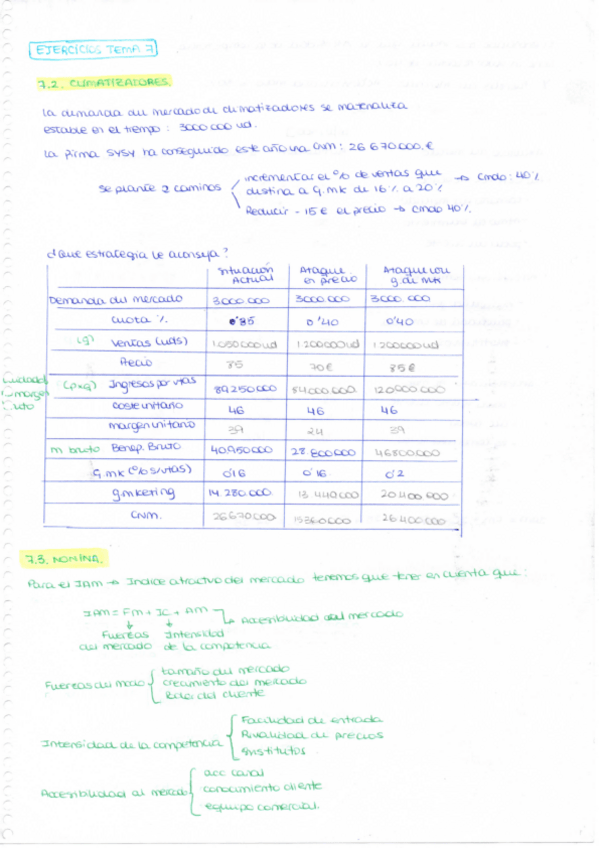 EJERCICIOS TEMA 7
7.2. CLIMATIZADORES.
La demanda del mercado de climatizadores se materializa
estable en el tiempo : 3000 000 ud.
La firma SYSY ha conseguido este año una CNM : 26 670000.€
se plantea 2 caminos
incrementar el % de ventas que
destina a G.mk de 16% a 20% → cmdo : 40%
Reducir - 15€ el precio → cmdo 40%.
¿Que estrategia le aconseja?
Situación Actual Ataque en precio Ataque con g. de mk
Demanda del mercado 3000 000 3000 000 3000 000
cuota % 0'35 0'40 0'40
(q) ventas (uds) 1.050000ud 1200000ud 1200000ud
Precio 85 70€ 85€
(pxq) Ingresos por vtas 89.250000 84000000 102000000
coste unitario 46 46 46
margen unitario 39 24 39
m bruto Benef. Bruto 40.950000 28 800000 46800000
G.mk (% s/vtas) 0'16 0'16 0'2
g.mkering 14.280.000 13 440000 20400 000
CNM. 26670000 15360000 26 400 000
7.3. NOMINA.
Para el IAM → Indice atractivo del mercado tenemos que tener en cuenta que :
IAM = FM + IC + AM → Accesibilidad del mercado
Fuerzas Intensidad
del mercado de la competencia
Fuerzas del mdo
tamaño del mercado
crecimiento del mercado
Poder del cliente
Intensidad de la competencia
Facilidad de entrada
Rivalidad de precios
sustitutos.
Accesibilidad al mercado
acc canal
conocimiento cliente
equipo comercial.